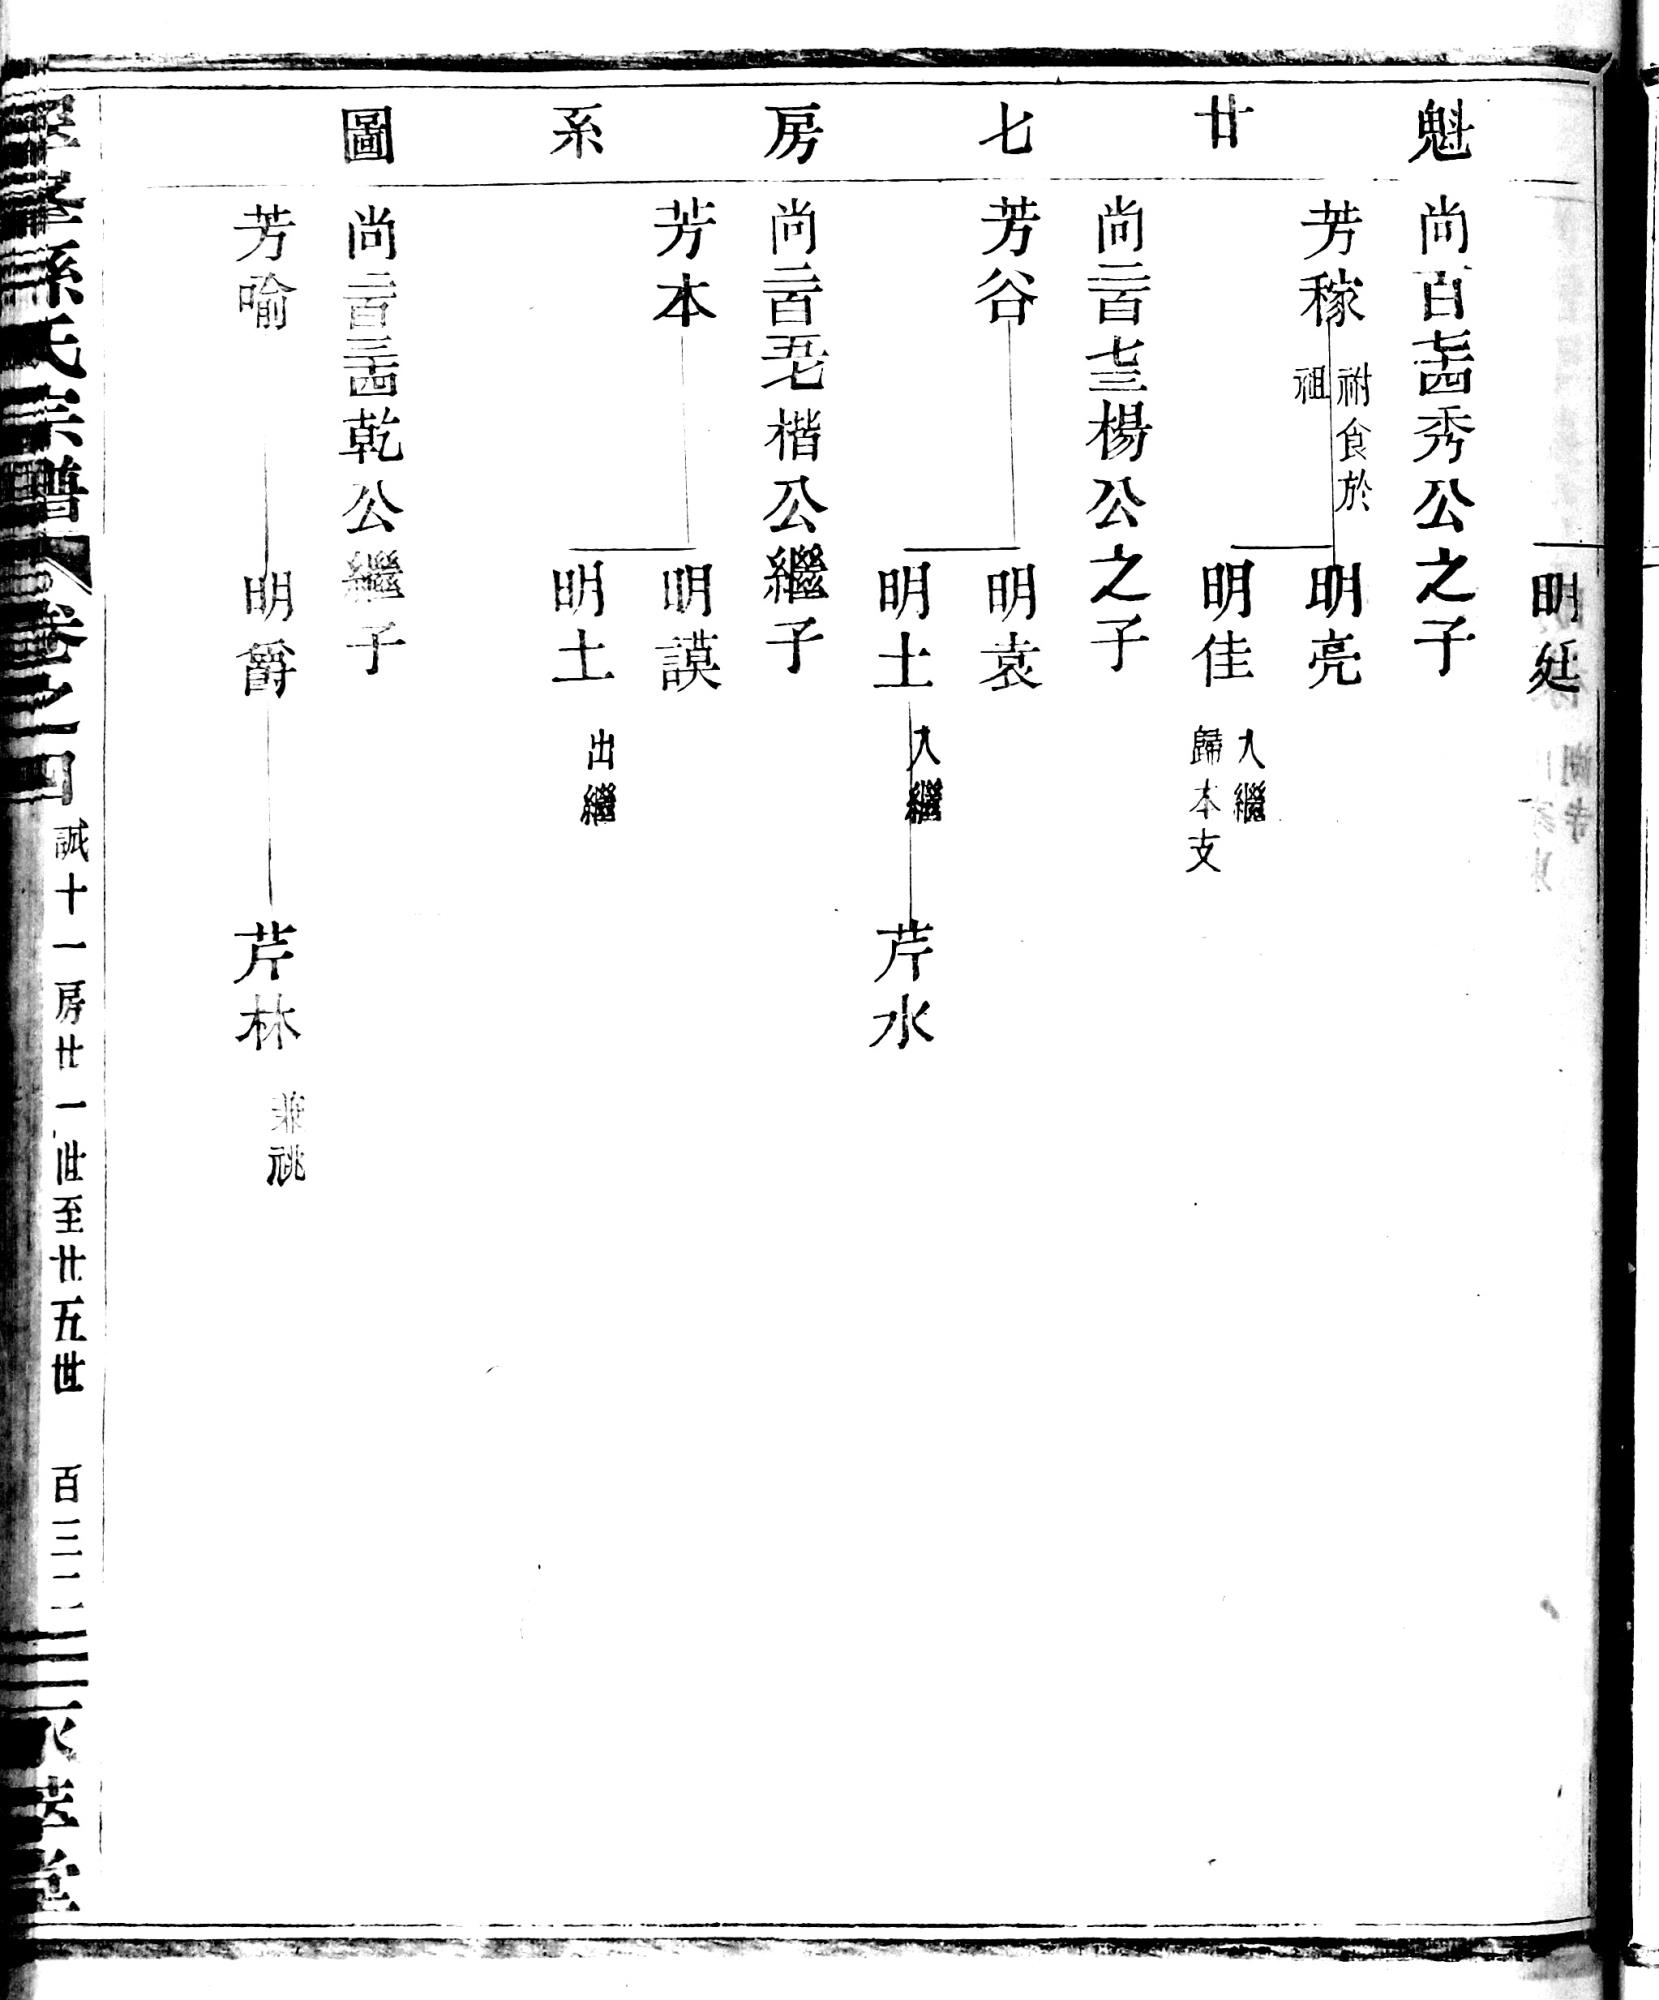 魁廿七房系圖
明廷
尚百七十四秀公之子
芳稼
祔食於
祖
明亮
明佳
入繼
歸本支
尚二百七十三楊公之子
芳谷
明袁
明土
入繼
芹水
尚二百五十七楷公繼子
芳本
明謨
明土
出繼
尚二百三十四乾公繼子
芳喻
明爵
芹林
兼祧
孫氏宗譜
卷之四
誠十一房廿一世至廿五世
百三二
堂